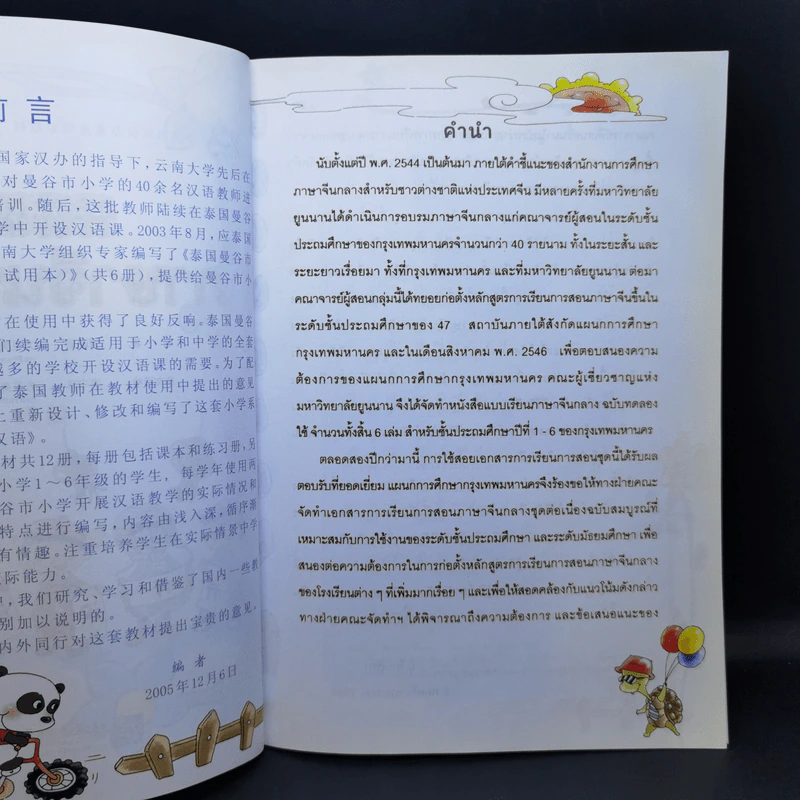 言
国家汉办的指导下，云南大学先后在
对曼谷市小学的40余名汉语教师进
培训。随后，这批教师陆续在泰国曼谷
学中开设汉语课。2003年8月，应泰国
南大学组织专家编写了《泰国曼谷市
试用本)》(共6册)，提供给曼谷市小
在使用中获得了良好反响。泰国曼谷
们续编完成适用于小学和中学的全套
越多的学校开设汉语课的需要。为了配
了泰国教师在教材使用中提出的意见
上重新设计、修改和编写了这套小学系
汉语》。
材共12册，每册包括课本和练习册，另
小学1～6年级的学生，每学年使用两
谷市小学开展汉语教学的实际情况和
特点进行编写，内容由浅入深，循序渐
有情趣。注重培养学生在实际情景中学
际能力。
，我们研究、学习和借鉴了国内一些教
别加以说明的。
内外同行对这套教材提出宝贵的意见，
编 者
2005年12月6日
คำนำ
นับตั้งแต่ปี พ.ศ. 2544 เป็นต้นมา ภายใต้คำชี้แนะของสำนักงานการศึกษา
ภาษาจีนกลางสำหรับชาวต่างชาติแห่งประเทศจีน มีหลายครั้งที่มหาวิทยาลัย
ยูนนานได้ดำเนินการอบรมภาษาจีนกลางแก่คณาจารย์ผู้สอนในระดับชั้น
ประถมศึกษาของกรุงเทพมหานครจำนวนกว่า 40 รายนาม ทั้งในระยะสั้น และ
ระยะยาวเรื่อยมา ทั้งที่กรุงเทพมหานคร และที่มหาวิทยาลัยยูนนาน ต่อมา
คณาจารย์ผู้สอนกลุ่มนี้ได้ทยอยก่อตั้งหลักสูตรการเรียนการสอนภาษาจีนขึ้นใน
ระดับชั้นประถมศึกษาของ 47 สถาบันภายใต้สังกัดแผนกการศึกษา
กรุงเทพมหานคร และในเดือนสิงหาคม พ.ศ. 2546 เพื่อตอบสนองความ
ต้องการของแผนกการศึกษากรุงเทพมหานคร คณะผู้เชี่ยวชาญแห่ง
มหาวิทยาลัยยูนนาน จึงได้จัดทำหนังสือแบบเรียนภาษาจีนกลาง ฉบับทดลอง
ใช้ จำนวนทั้งสิ้น 6 เล่ม สำหรับชั้นประถมศึกษาปีที่ 1 - 6 ของกรุงเทพมหานคร
ตลอดสองปีกว่ามานี้ การใช้สอยเอกสารการเรียนการสอนชุดนี้ได้รับผล
ตอบรับที่ยอดเยี่ยม แผนกการศึกษากรุงเทพมหานครจึงร้องขอให้ทางฝ่ายคณะ
จัดทำเอกสารการเรียนการสอนภาษาจีนกลางชุดต่อเนื่องฉบับสมบูรณ์ที่
เหมาะสมกับการใช้งานของระดับชั้นประถมศึกษา และระดับมัธยมศึกษา เพื่อ
สนองต่อความต้องการในการก่อตั้งหลักสูตรการเรียนการสอนภาษาจีนกลาง
ของโรงเรียนต่าง ๆ ที่เพิ่มมากเรื่อย ๆ และเพื่อให้สอดคล้องกับแนวโน้มดังกล่าว
ทางฝ่ายคณะจัดทำฯ ได้พิจารณาถึงความต้องการ และข้อเสนอแนะของ